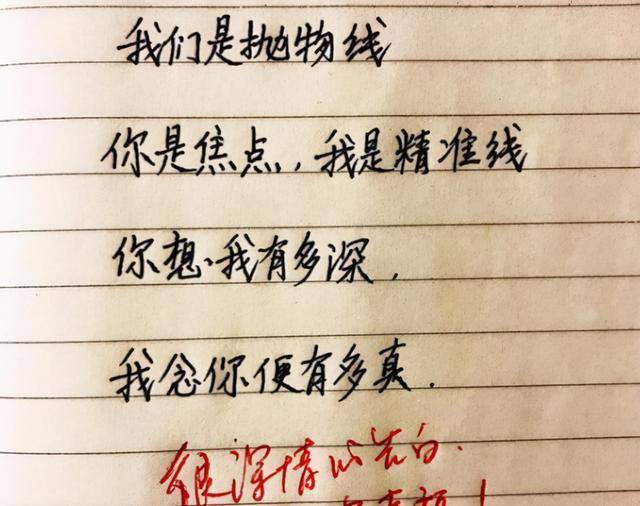 我们是抛物线
你是焦点，我是精准线
你想我有多深，
我念你便有多真．
很深情的告白．